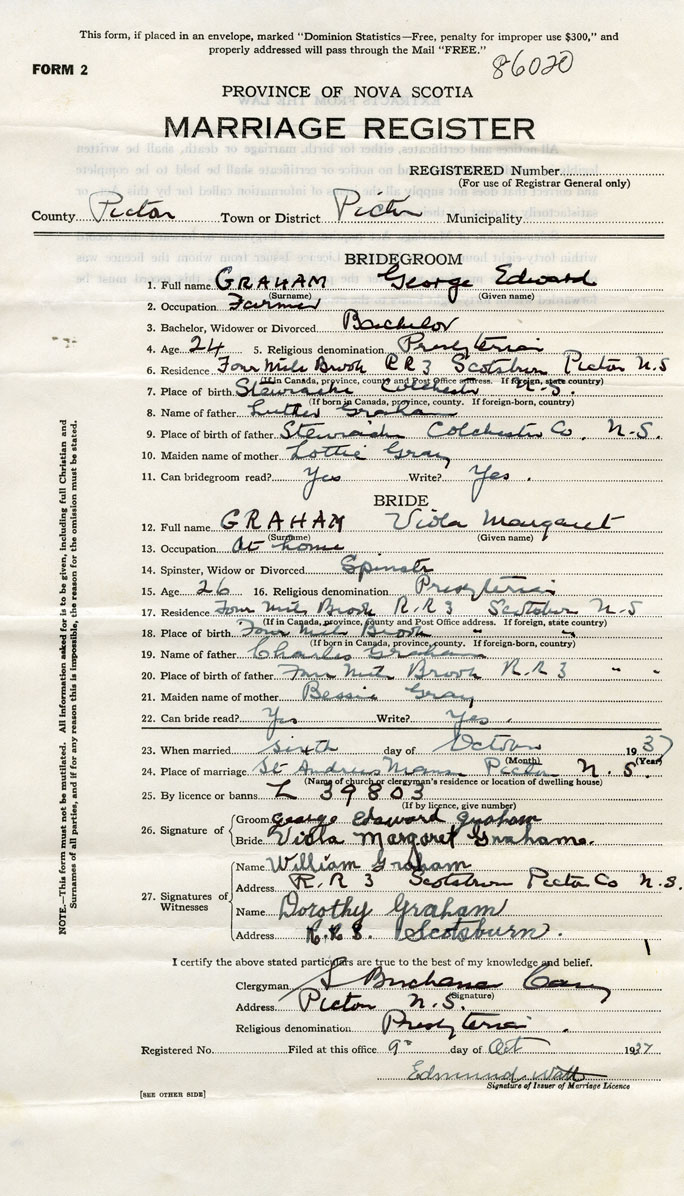 This form, if placed in an envelope, marked "Dominion Statistics—Free, penalty for improper use $300," and
properly addressed will pass through the Mail "FREE."
86020
FORM 2
PROVINCE OF NOVA SCOTIA
MARRIAGE REGISTER
REGISTERED Number
(For use of Registrar General only)
County Pictou Town or District Pictou Municipality
BRIDEGROOM
1. Full name GRAHAM George Edward
(Surname) (Given name)
2. Occupation Farmer
3. Bachelor, Widower or Divorced Bachelor
4. Age 24 5. Religious denomination Presbyterian
6. Residence Four Mile Brook RR3 Scotsburn Pictou N.S
(If in Canada, province, county and Post Office address. If foreign, state country)
7. Place of birth Stewiacke Colchester N.S.
(If born in Canada, province, county. If foreign-born, country)
8. Name of father Luther Graham
9. Place of birth of father Stewiacke Colchester Co. N.S.
10. Maiden name of mother Lottie Gray
11. Can bridegroom read? Yes Write? Yes.
BRIDE
12. Full name GRAHAM Viola Margaret
(Surname) (Given name)
13. Occupation At home
14. Spinster, Widow or Divorced Spinster
15. Age 26 16. Religious denomination Presbyterian
17. Residence Four Mile Brook R.R3 Scotsburn N-S
(If in Canada, province, county and Post Office address. If foreign, state country)
18. Place of birth Four Mile Brook " "
(If born in Canada, province, county. If foreign-born, country)
19. Name of father Charles Graham
20. Place of birth of father Four Mile Brook R.R3 " "
21. Maiden name of mother Bessie Gray
22. Can bride read? Yes Write? Yes.
23. When married sixth day of October 1937
(Month) (Year)
24. Place of marriage St Andrews Manse Pictou N.S.
(Name of church or clergyman's residence or location of dwelling house)
25. By licence or banns L 39803
(If by licence, give number)
26. Signature of
Groom George Edward Graham
Bride Viola Margaret Grahame.
27. Signatures of Witnesses
Name William Graham
Address R.R 3 Scotsburn Pictou Co N.S.
Name Dorothy Graham
Address R.R3. Scotsburn.
I certify the above stated particulars are true to the best of my knowledge and belief.
Clergyman Buchanan
(Signature)
Address Pictou N.S.
Religious denomination Presbyterian.
Registered No. Filed at this office 9th day of Oct 1937
Edmund Watt
Signature of Issuer of Marriage Licence
[SEE OTHER SIDE]
NOTE.—This form must not be mutilated. All information asked for is to be given, including full Christian and
Surnames of all parties, and if for any reason this is impossible, the reason for the omission must be stated.